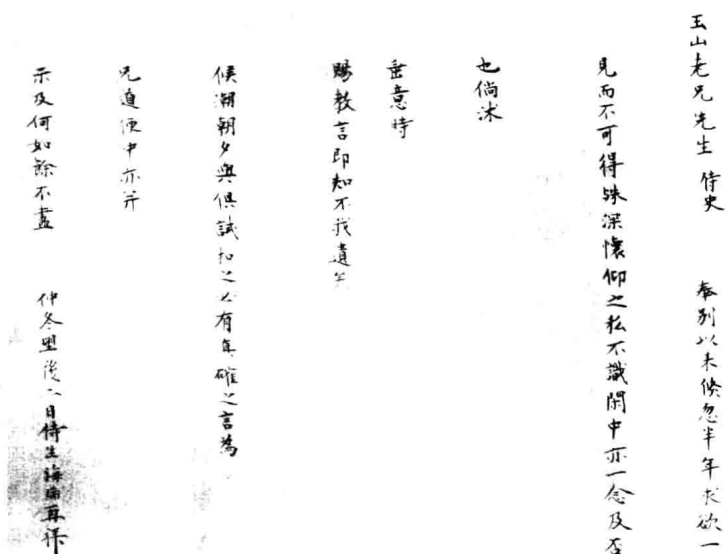 玉山老兄先生 侍史 奉別以來倏忽半年求欲一
見而不可得殊深懷仰之私不識閑中亦一念及否
也倘沐
垂意時
賜教言即知不我遺矣
候潮朝夕與俱試扣之必有真確之言為
兄道便中亦并
示及何如餘不盡 仲冬望後八日侍生海瑞再拜